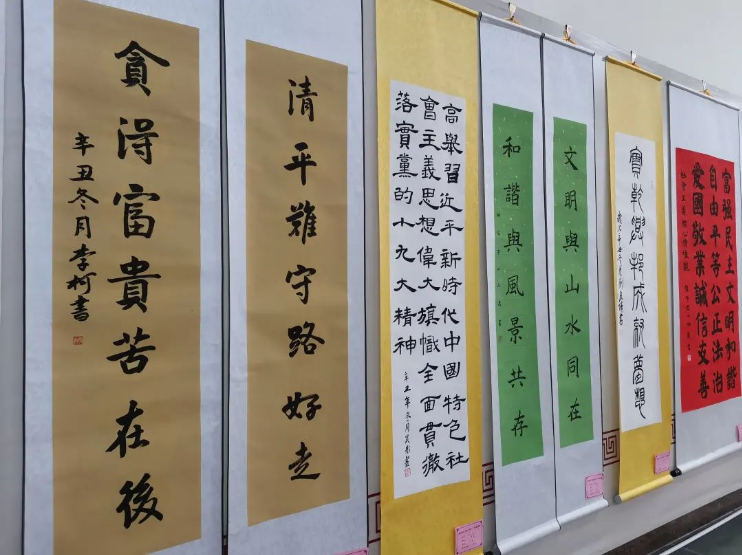 貪得富貴苦在後
辛丑冬月李柯書
清平難守路好走
高舉習近平新時代中國特色社
會主義思想偉大旗幟全面貫徹
落實黨的十九大精神
和諧與風景共存
文明與山水同在
實幹興邦成就夢想
富强民主文明和諧
自由平等公正法治
愛國敬業誠信友善
社會主義核心價值觀